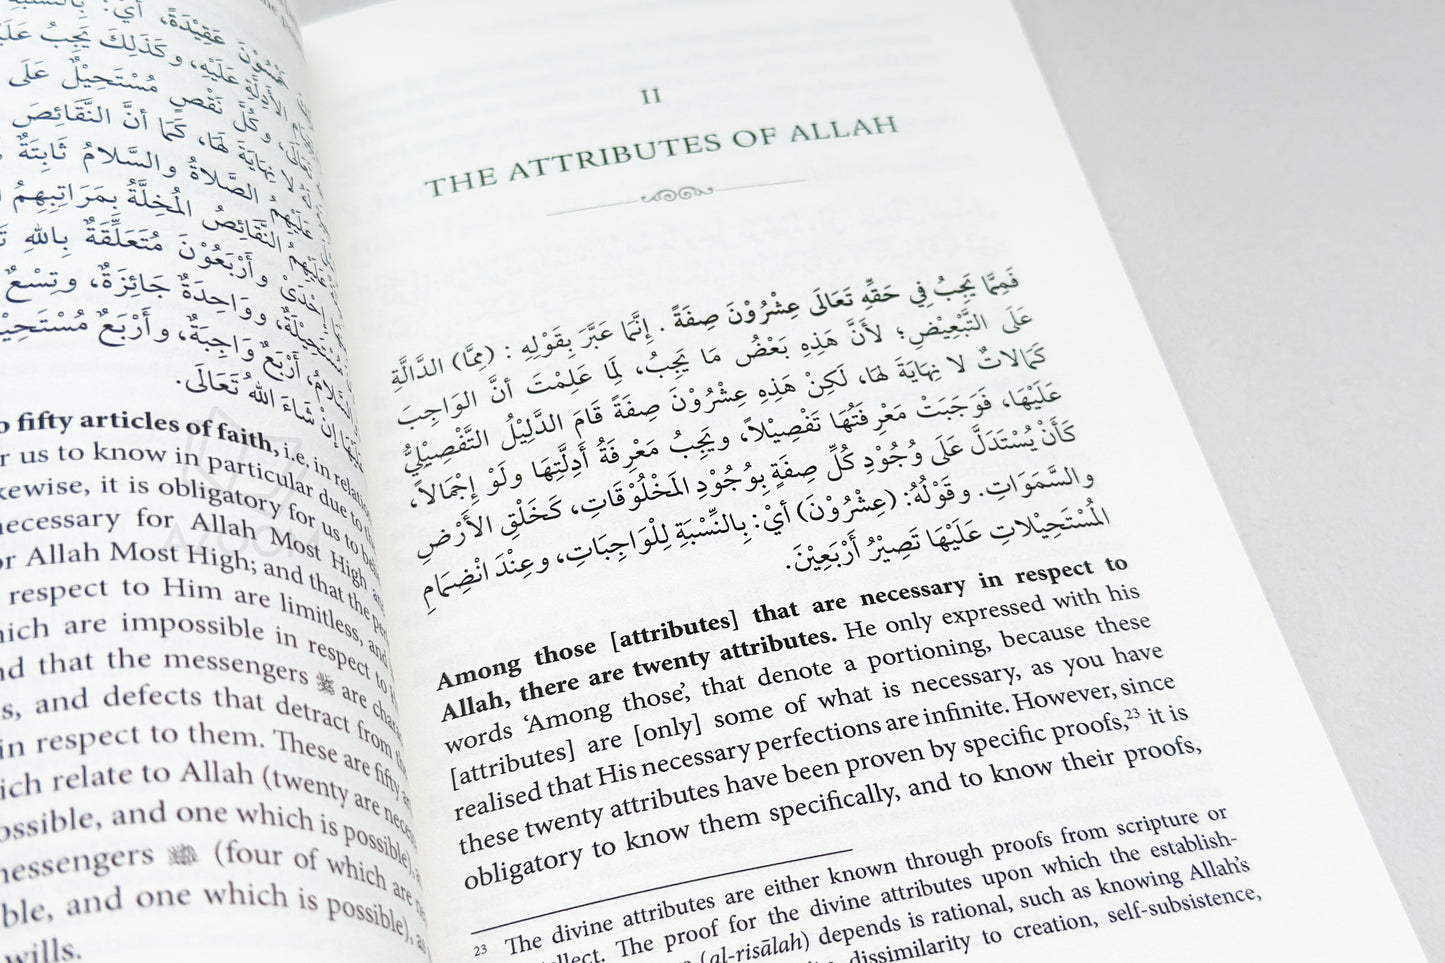 هْسُوْنَ عَقِيْدَةً، أَيْ: بِالنِّسْبَةِ
الأَدِلَّةِ عَلَيْهِ، وكَذَلِكَ يَجِبُ عَلَيْ
تَعَالَى، وكُلُّ نَقْصٍ مُسْتَحِيْلٌ عَلَى
لا نِهَايَةَ لَهَا، كَمَا أَنَّ النَّقَائِصَ
عَلَيْهِمُ الصَّلاةُ والسَّلامُ ثَابِتَةٌ
عَلَيْهِمُ النَّقَائِصُ المُخِلَّةُ بِمَرَاتِبِهِمُ
إِحْدَىْ وأَرْبَعُوْنَ مُتَعَلِّقَةٌ بِاللهِ
مُسْتَحِيْلَةٌ، ووَاحِدَةٌ جَائِزَةٌ، وتِسْعٌ
السَّلامُ، أَرْبَعٌ وَاجِبَةٌ، وأَرْبَعٌ
إِنْ شَاءَ اللهُ تَعَالَى.
fifty articles of faith, i.e. in
r us to know in particular due to
kewise, it is obligatory for us to
necessary for Allah Most High
or Allah Most High; and that the
respect to Him are limitless, and
hich are impossible in respect to
nd that the messengers ﷺ are
s, and defects that detract from
in respect to them. These are fifty
ich relate to Allah (twenty are
ossible, and one which is possible),
messengers ﷺ (four of which are
ble, and one which is possible),
wills.
II
THE ATTRIBUTES OF ALLAH
فَمِمَّا يَجِبُ فِي حَقِّهِ تَعَالَى عِشْرُوْنَ صِفَةً . إِنَّمَا عَبَّرَ بِقَوْلِهِ : (مِمَّا) الدَّالَّةِ
عَلَى التَّبْعِيْضِ؛ لأَنَّ هَذِهِ بَعْضُ مَا يَجِبُ، لِمَا عَلِمْتَ أَنَّ الوَاجِبَ
كَمَالاتٌ لا نِهَايَةَ لَهَا، لَكِنْ هَذِهِ عِشْرُوْنَ صِفَةً قَامَ الدَّلِيْلُ التَّفْصِيْلِيُّ
عَلَيْهَا، فَوَجَبَتْ مَعْرِفَتُهَا تَفْصِيْلاً، ويَجِبُ مَعْرِفَةُ أَدِلَّتِهَا ولَوْ إِجْمَالاً،
كَأَنْ يُسْتَدَلَّ عَلَى وُجُوْدِ كُلِّ صِفَةٍ بِوُجُوْدِ المَخْلُوْقَاتِ، كَخَلْقِ الأَرْضِ
والسَّمَوَاتِ. وقَوْلُهُ: (عِشْرُوْنَ) أَيْ: بِالنِّسْبَةِ لِلْوَاجِبَاتِ، وعِنْدَ انْضِمَامِ
المُسْتَحِيْلاتِ عَلَيْهَا تَصِيْرُ أَرْبَعِيْنَ.
Among those [attributes] that are necessary in respect to
Allah, there are twenty attributes. He only expressed with his
words ‘Among those’, that denote a portioning, because these
[attributes] are [only] some of what is necessary, as you have
realised that His necessary perfections are infinite. However, since
these twenty attributes have been proven by specific proofs,²³ it is
obligatory to know them specifically, and to know their proofs,
23 The divine attributes are either known through proofs from scripture or
llect. The proof for the divine attributes upon which the establish-
(al-risālah) depends is rational, such as knowing Allah’s
dissimilarity to creation, self-subsistence,